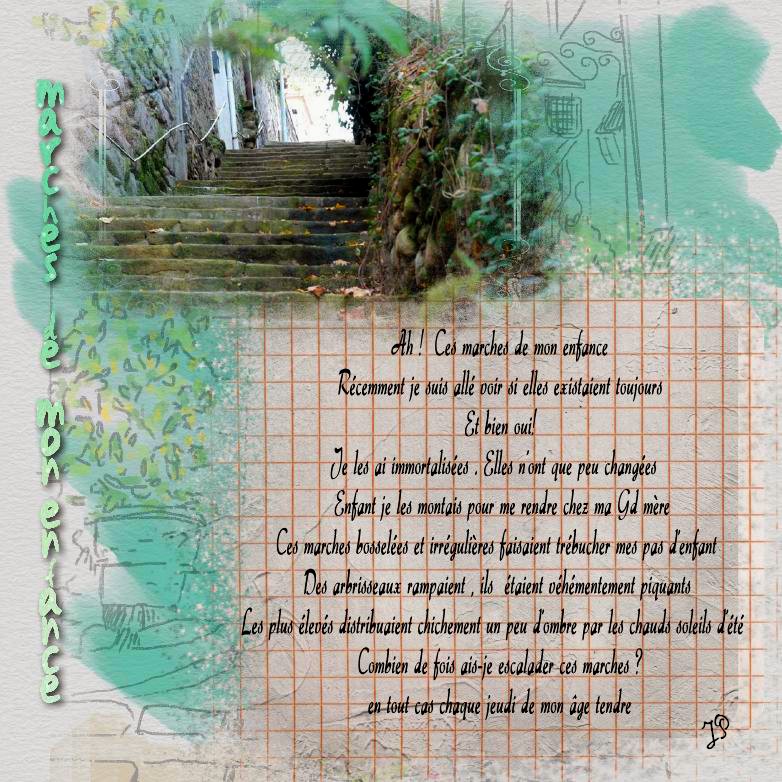 marches de mon enfance
Ah ! Ces marches de mon enfance
Récemment je suis allé voir si elles existaient toujours
Et bien oui!
Je les ai immortalisées . Elles n'ont que peu changées
Enfant je les montais pour me rendre chez ma Gd mère
Ces marches bosselées et irrégulières faisaient trébucher mes pas d'enfant
Des arbrisseaux rampaient , ils étaient véhémentement piquants
Les plus élevés distribuaient chichement un peu d'ombre par les chauds soleils d'été
Combien de fois ais-je escalader ces marches ?
en tout cas chaque jeudi de mon âge tendre
JP